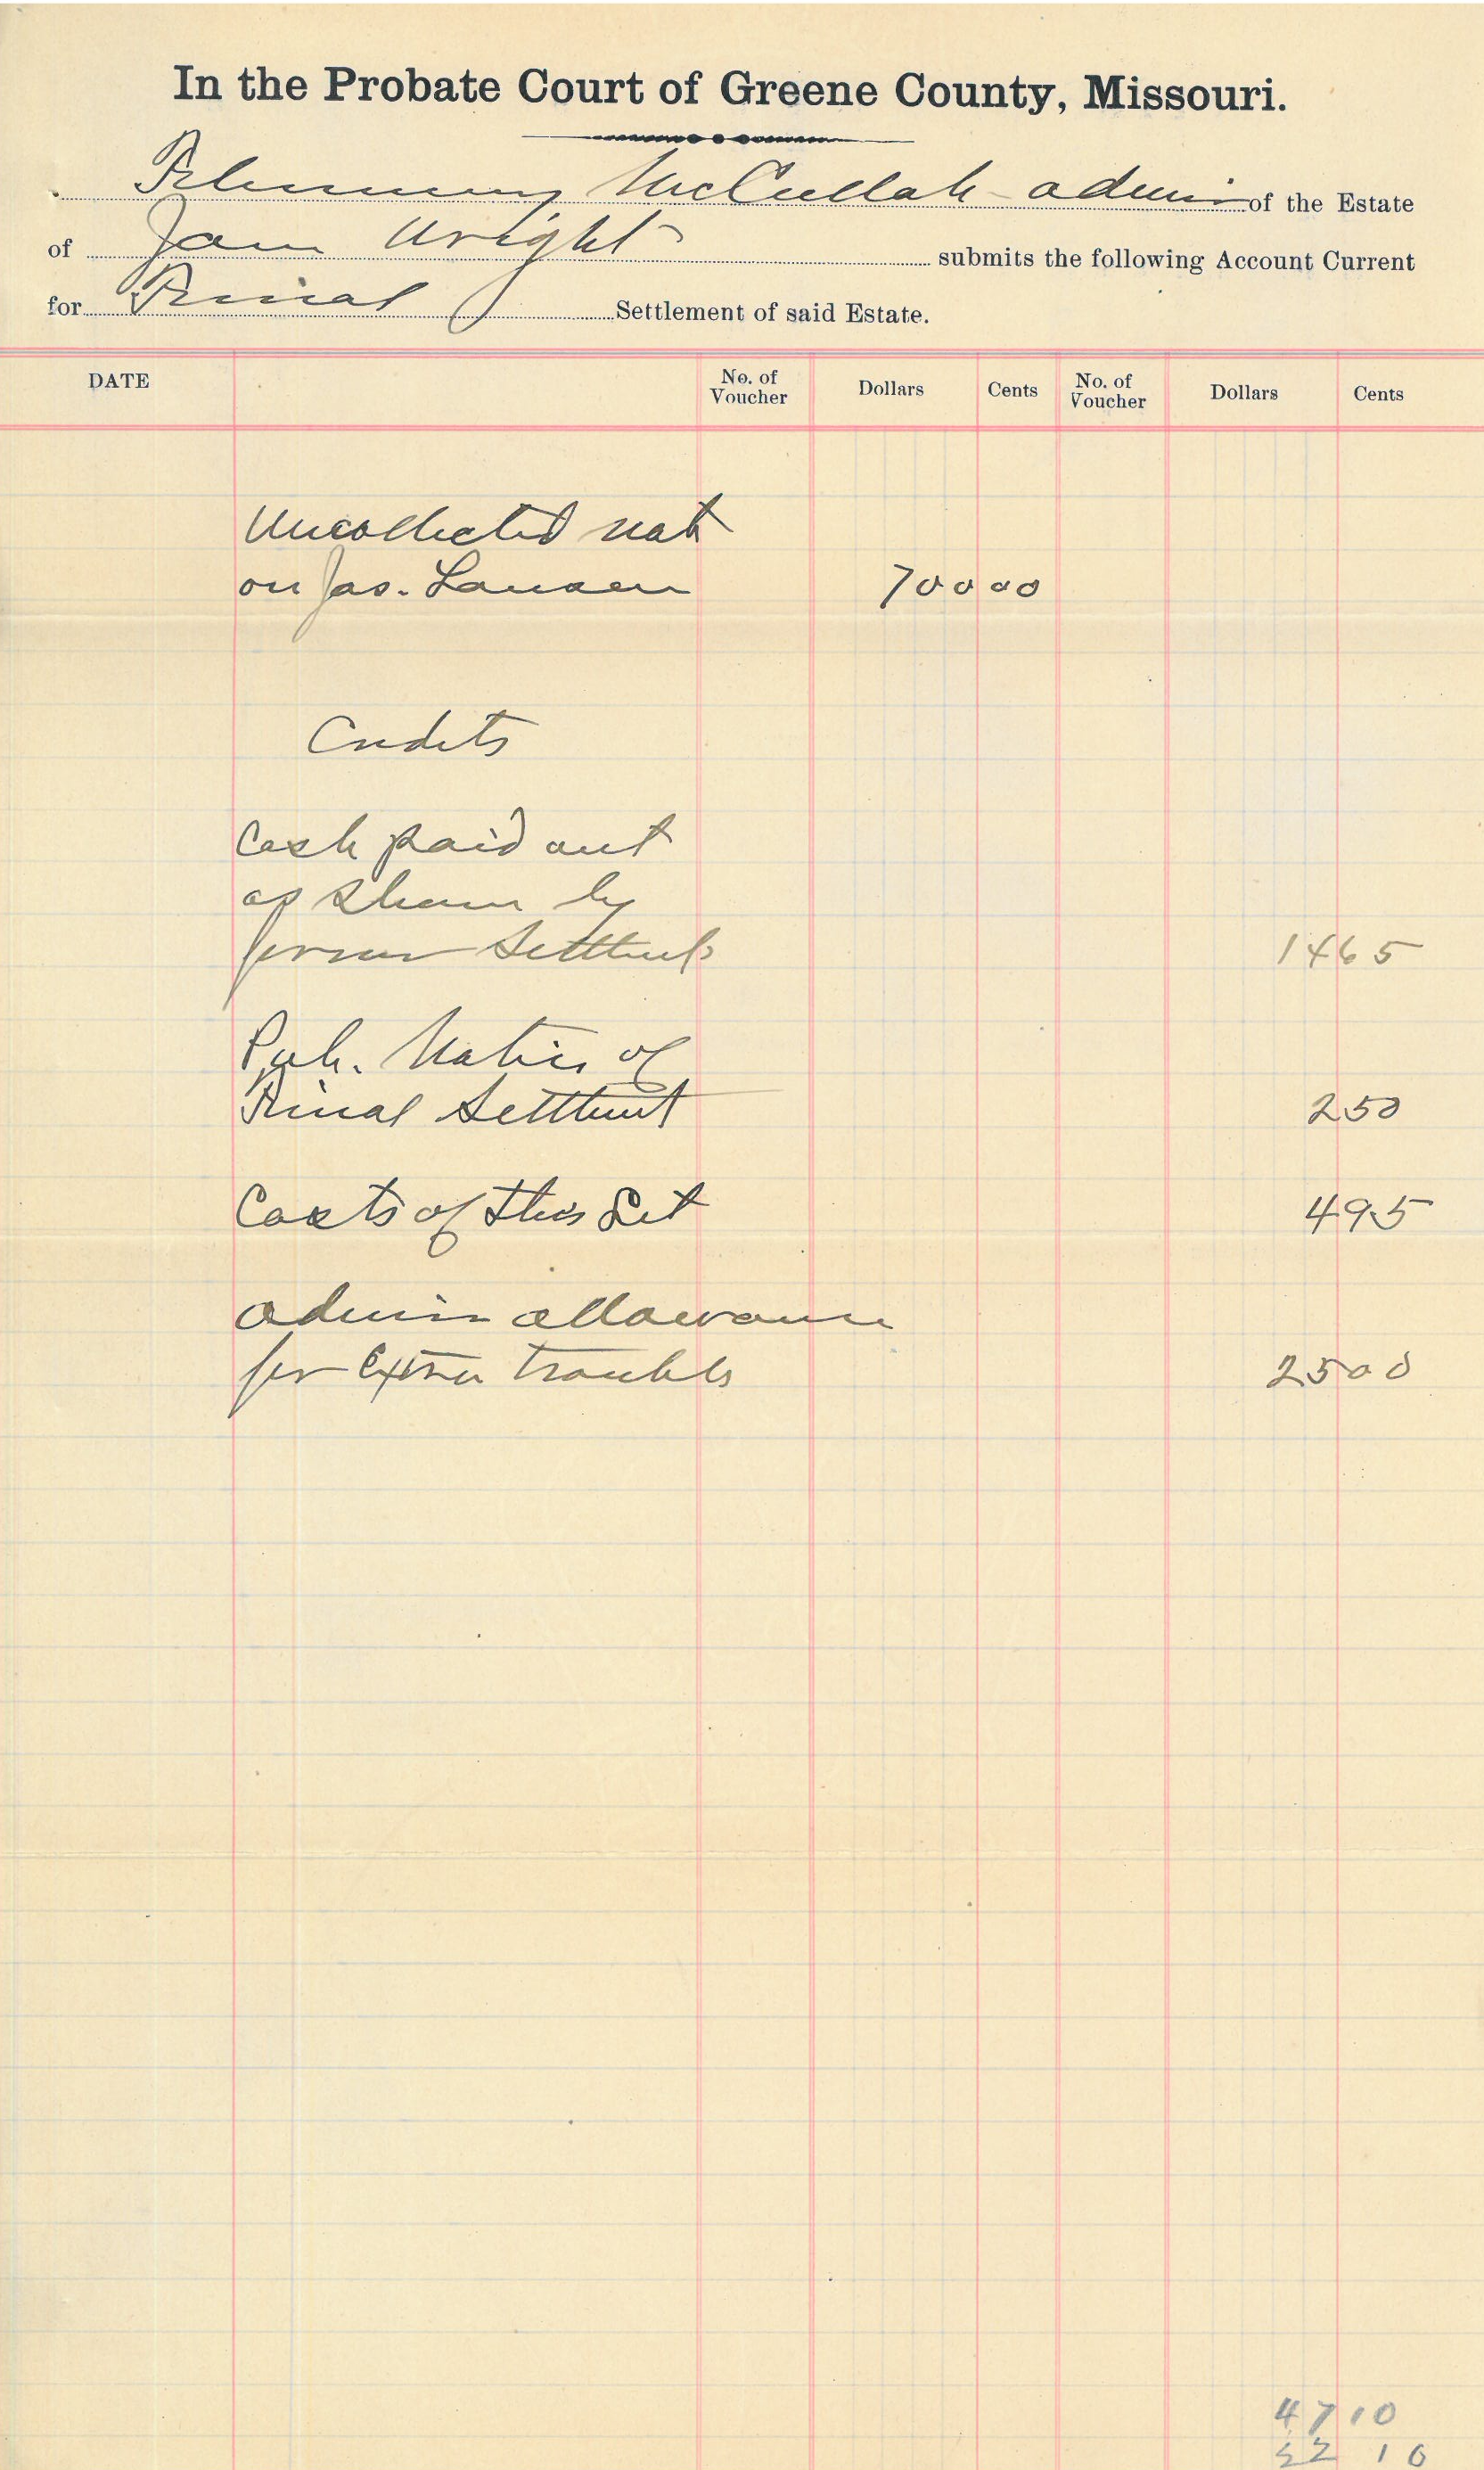 In the Probate Court of Greene County, Missouri.
Flemming McCullah admin of the Estate
of Jam Wright submits the following Account Current
for Final Settlement of said Estate.
DATE No. of Voucher Dollars Cents No. of Voucher Dollars Cents
Uncollected not
on Jas. 700 00
Credits
Cash paid out
as shown by
former Settlmts 14 65
Pub. Notice of
Final Settlmt 2 50
Costs of this Set 4 95
admin allowance
for Extra trouble 25 00
47 10
22 10